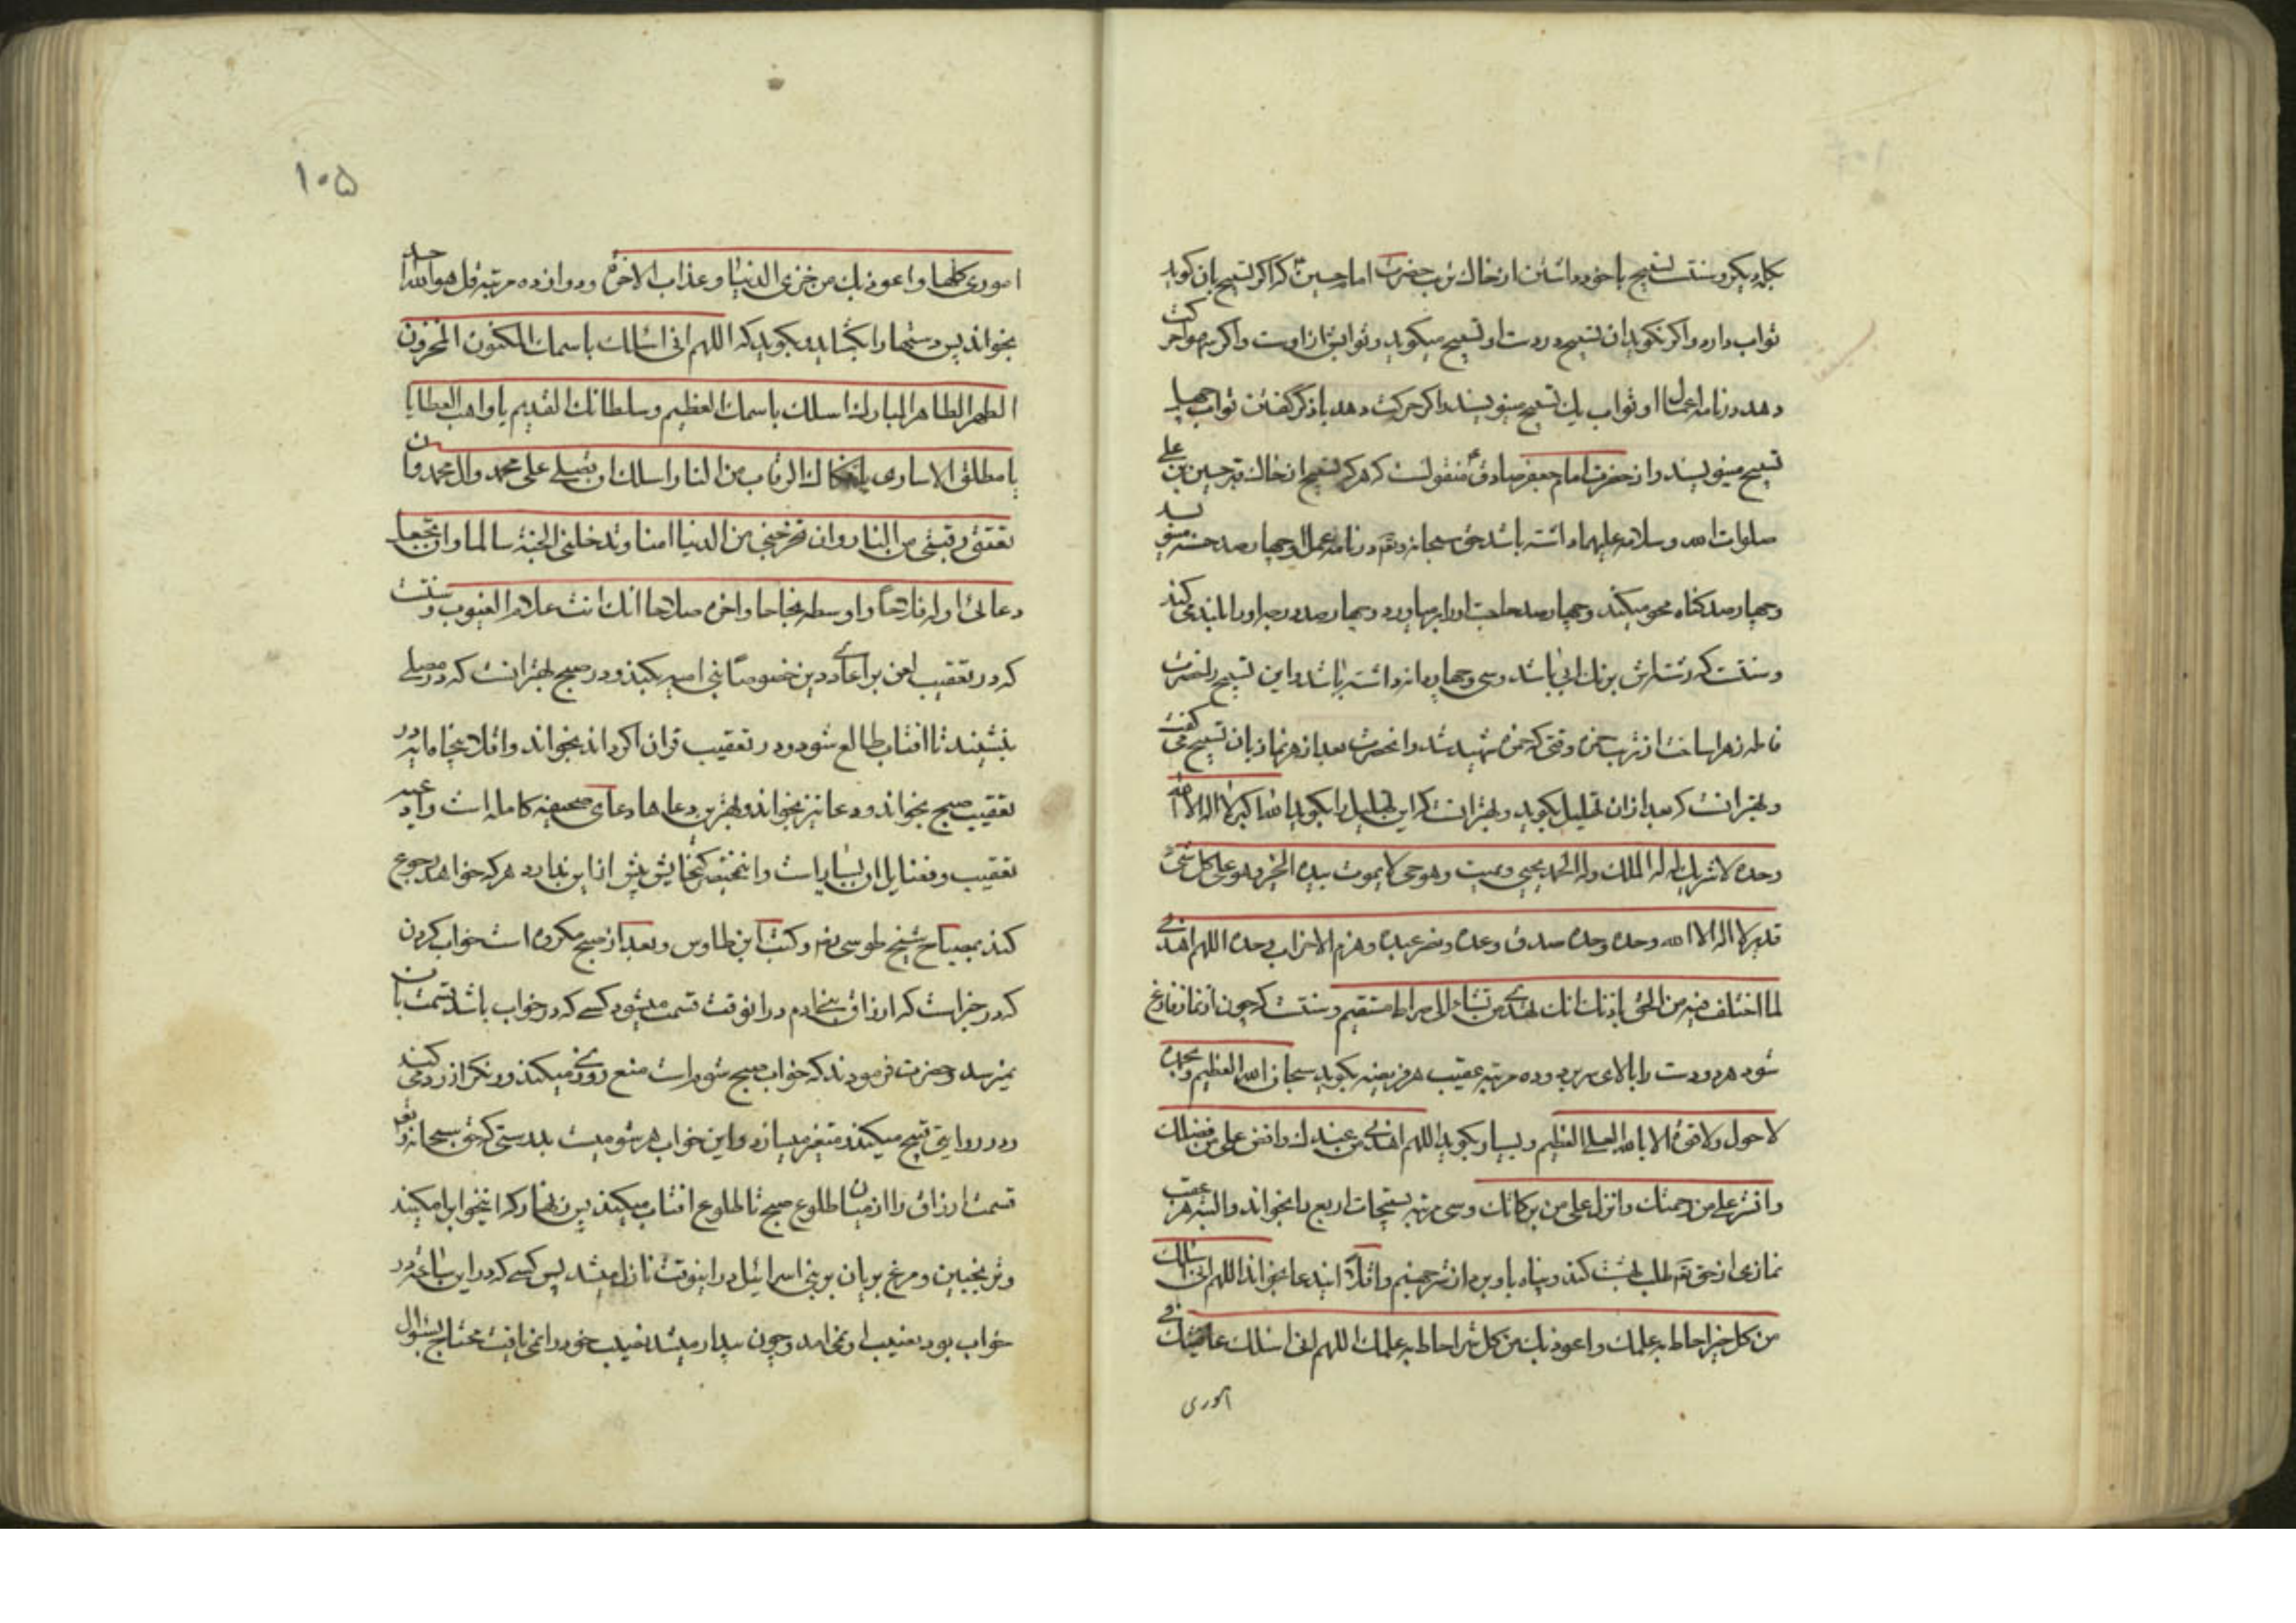 بگوید و سنتست تسبیح با خود داشتن از خاک تربت حضرت امام حسین ع که اگر تسبیح بان گوید
ثواب دارد و اگر نگوید ان تسبیح در دست او تسبیح میگوید و ثوابش از اوست و اگر بسهو حرکت
دهد در نامه اعمال او ثواب یک تسبیح مینویسند و اگر حرکت دهد با ذکر گفتن ثواب چهل
تسبیح مینویسند و از حضرت امام جعفر صادق ع منقولست که هر که تسبیح از خاک قبر حسین بن علی
صلوات الله و سلامه علیهما داشته باشد حق سبحانه و تع در نامه عمل او چهار صد حسنه مینویسد
و چهار صد گناه محو میکند و چهار صد حاجت او را بر میاورد و چهار صد درجه او را بلند می کند
و سنتست که رشته اش برنگ ابی باشد و سی و چهار دانه داشته باشد و این تسبیح را حضرت
فاطمه زهرا ساخت از تربت حمزه وقتی که حمزه شهید شد و انحضرت بعد از هر نماز بان تسبیح می گفت
و بهتر انست که بعد از ان تهلیل بگوید و بهتر انست که این تهلیل را بگوید الله اکبر لا اله الا الله
وحده لا شریک له له الملک وله الحمد یحیی و یمیت وهو حی لا یموت بیده الخیر وهو علی کل شئ
قدیر لا اله الا الله وحده وحده صدق وعده و نصر عبده وهزم الاحزاب وحده اللهم اهدنی
لما اختلف فیه من الحق باذنک انک تهدی من تشاء الی صراط مستقیم و سنتست که چون از نماز فارغ
شود هر دو دست را بالای سر برد و ده مرتبه عقیب هر فریضه بگوید سبحان الله العظیم و بحمده
لا حول ولا قوة الا بالله العلی العظیم و بسیار بگوید اللهم اهدنی من عندک وافض علی من فضلک
وانشر علی من رحمتک وانزل علی من برکاتک و سی مرتبه تسبیحات اربع را بخواند و البته هر عقب
نمازی از حق تع طلب بهشت کند و پناه باو برد از شر جهنم و اقلا ایندعا بخواند اللهم انی اسئلک
من کل خیر احاط به علمک واعوذ بک من کل شر احاط به علمک اللهم انی اسئلک عافیتک فی
اموری
۱۰۵
اموری کلها واعوذ بک من خزی الدنیا و عذاب الاخرة و دوازده مرتبه قل هو الله احد
بخواند پس دستها را بگشاید و بگوید که اللهم انی اسئلک باسمک المکنون المخزون
الطهر الطاهر المبارک اسئلک باسمک العظیم و سلطانک القدیم یا واهب العطایا
یا مطلق الاساری یا فکاک الرقاب من النار اسئلک ان تصلی علی محمد وال محمد وان
تعتق رقبتی من النار وان تخرجنی من الدنیا امنا و تدخلنی الجنة سالما وان تجعل
دعائی اوله فلاحا و اوسطه نجاحا واخره صلاحا انک انت علام الغیوب و سنتست
که در تعقیب لعن بر اعادی دین خصوصا بنی امیه بکند و در صبح بهتر انست که در مصلی
بنشیند تا افتاب طالع شود و در تعقیب قران اگر داند بخواند و اقلا پنجاه ایه در
تعقیب صبح بخواند و دعا نیز بخواند و بهترین دعاها دعای صحیفه کامله است و ادعیه
تعقیب و فضایل ان بسیار است و این مختصر گنجایش بیش از این ندارد هر که خواهد رجوع
کند بمصباح شیخ طوسی ره و کتب ابن طاوس و بعد از صبح مکروه است خواب کردن
که در خبر است که ارزاق بنی ادم در انوقت قسمت میشود کسی که در خواب باشد قسمت بان
نمیرسد و حضرت فرمودند که خواب صبح شوم است منع روزی میکند و رنگ را زرد می کند
و در روایتی قبیح میکند و متغیر میسازد و این خواب هر شومیست بدرستی که حق سبحانه و تع
قسمت ارزاق را از میان طلوع صبح تا طلوع افتاب میکند پس زنهار که اینخواب را مکنید
و ترنجبین و مرغ بریان بر بنی اسرائیل در اینوقت نازل میشد پس کسی که در این ساعت در
خواب بود نصیب او نمی امد و چون بیدار میشد نصیب خود را نمی یافت محتاج بسؤال